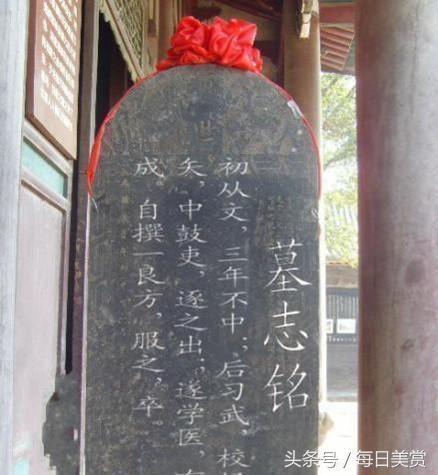 墓志铭
初从文，三年不中；后习武，校
矢，中鼓吏，逐之出；遂学医，有
成。自撰一良方，服之，卒。
头条号／每日美赏